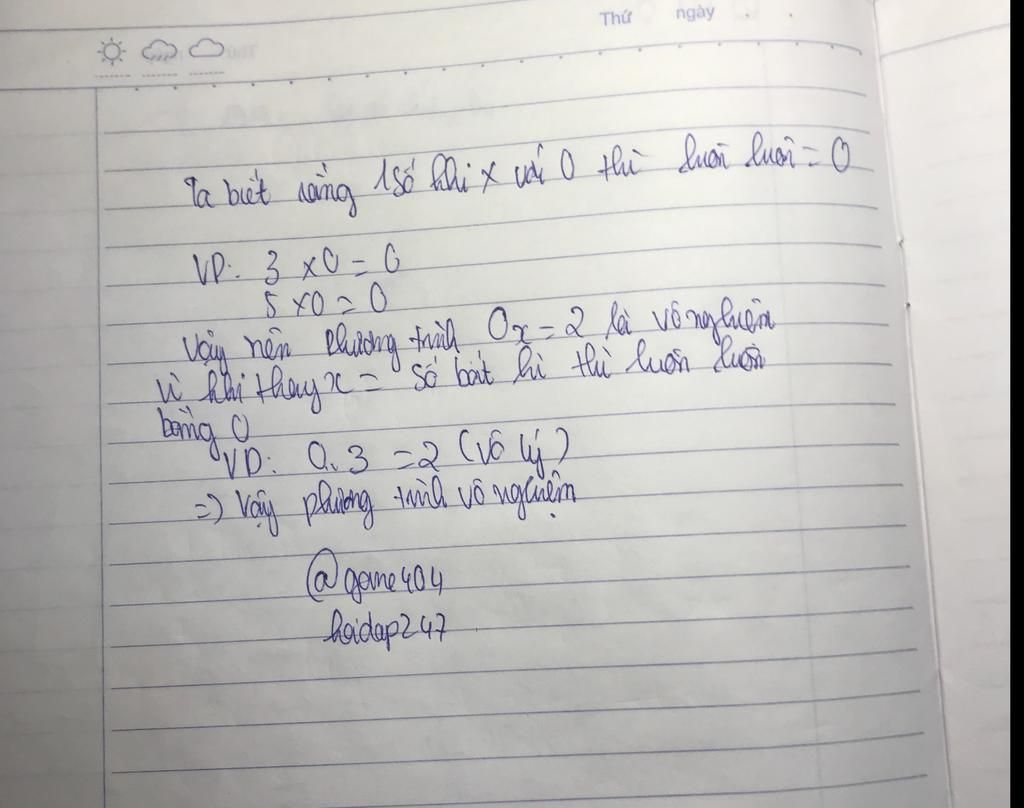 Thứ ngày
Ta biết rằng 1 số khi x với 0 thì luôn luôn = 0
VD: 3 x 0 = 0
5 x 0 = 0
Vậy nên phương trình 0x = 2 là vô nghiệm
vì khi thay x = số bất kì thì luôn luôn
bằng 0
VD: 0.3 = 2 (vô lý)
=> Vậy phương trình vô nghiệm
@game404
hoidap247